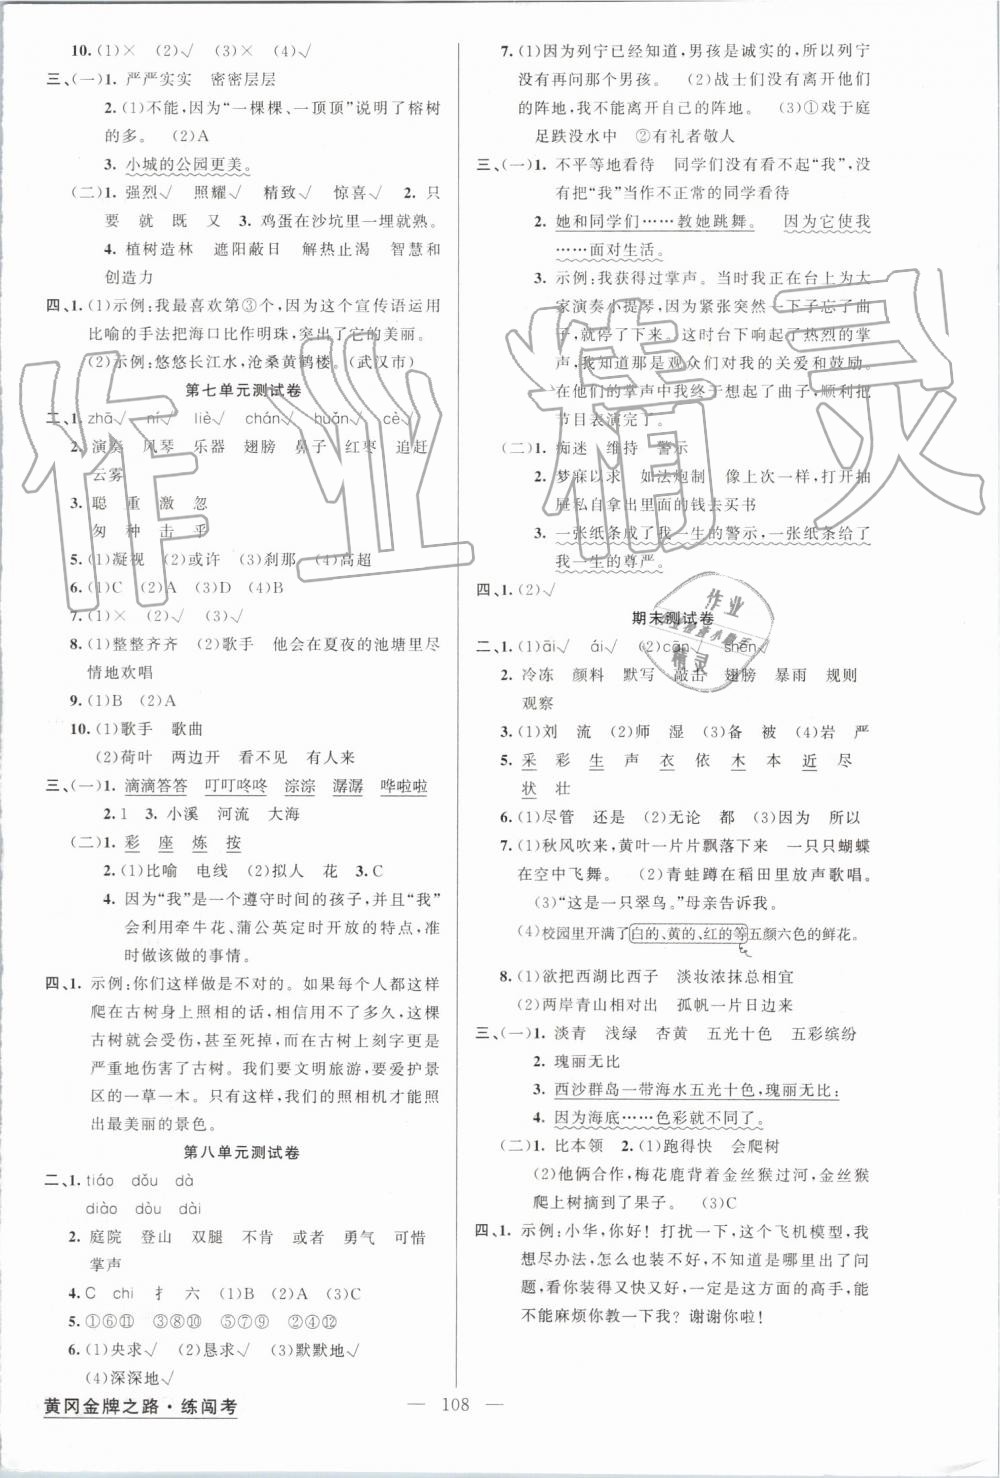 10. (1)× (2)√ (3)× (4)√
三、(一)1. 严严实实 密密层层
2. (1)不能,因为“一棵棵、一顶顶”说明了榕树
的多。 (2)A
3. 小城的公园更美。
(二)1. 强烈√ 照耀√ 精致√ 惊喜√ 2. 只
要 就 既 又 3. 鸡蛋在沙坑里一埋就熟。
4. 植树造林 遮阳蔽日 解热止渴 智慧和
创造力
四、1. (1)示例:我最喜欢第③个,因为这个宣传语运用
比喻的手法把海口比作明珠,突出了它的美丽。
(2)示例:悠悠长江水,沧桑黄鹤楼。(武汉市)
第七单元测试卷
二、1. zhā√ ní√ liè√ chán√ huǎn√ cè√
2. 演奏 风琴 乐器 翅膀 鼻子 红枣 追赶
云雾
3. 聪 重 激 忽
匆 种 击 乎
5. (1)凝视 (2)或许 (3)刹那 (4)高超
6. (1)C (2)A (3)D (4)B
7. (1)× (2)√ (3)√
8. (1)整整齐齐 (2)歌手 他会在夏夜的池塘里尽
情地欢唱
9. (1)B (2)A
10. (1)歌手 歌曲
(2)荷叶 两边开 看不见 有人来
三、(一)1. 滴滴答答 叮叮咚咚 淙淙 潺潺 哗啦啦
2. 1 3. 小溪 河流 大海
(二)1. 彩 座 炼 按
2. (1)比喻 电线 (2)拟人 花 3. C
4. 因为“我”是一个遵守时间的孩子,并且“我”
会利用牵牛花、蒲公英定时开放的特点,准
时做该做的事情。
四、1. 示例:你们这样做是不对的。如果每个人都这样
爬在古树身上照相的话,相信用不了多久,这棵
古树就会受伤,甚至死掉,而在古树上刻字更是
严重地伤害了古树。我们要文明旅游,要爱护景
区的一草一木。只有这样,我们的照相机才能照出
最美丽的景色。
第八单元测试卷
二、1. tiáo dǒu dà
diào dòu dài
2. 庭院 登山 双腿 不肯 或者 勇气 可惜
掌声
4. C chi 扌 六 (1)B (2)A (3)C
5. ①⑥⑪ ③⑧⑩ ⑤⑦⑨ ②④⑫
6. (1)央求√ (2)恳求√ (3)默默地√
(4)深深地√
黄冈金牌之路·练闯考
7. (1)因为列宁已经知道,男孩是诚实的,所以列宁
没有再问那个男孩。 (2)战士们不能离开他们
的阵地,我不能离开自己的阵地。 (3)①戏于庭
足跌没水中 ②有礼者敬人
三、(一)1. 不平等地看待 同学们没有看不起“我”,没
有把“我”当作不正常的同学看待
2. 她和同学们……教她跳舞。 因为它使我
……面对生活。
3. 示例:我获得过掌声。当时我正在台上为大
家演奏小提琴,因为紧张突然一下子忘了曲
子,就停了下来。这时台下响起了热烈的掌
声,我知道那是观众们对我的关爱和鼓励。
在他们的掌声中我又想起了曲子,顺利把
节目表演完了。
(二)1. 痴迷 维持 警示
2. 梦寐以求 如法炮制 像上次一样,打开抽
屉私自拿出里面的钱去买书
3. 一张纸条成了我一生的警示,一张纸条给了
我一生的尊严。
四、1. (2)√
期末测试卷
二、1. (1)āi√ ái√ (2)cān√ shēn√
2. 冷冻 颜料 默写 敲击 翅膀 暴雨 规则
观察
3. (1)刘 流 (2)师 湿 (3)备 被 (4)岩 严
5. 采 彩 生 声 衣 依 木 本 近 尽
状 壮
6. (1)尽管 还是 (2)无论 都 (3)因为 所以
7. (1)秋风吹来,黄叶一片片飘落下来 一只只蝴蝶
在空中飞舞。 (2)青蛙蹲在稻田里放声歌唱。
(3)“这是一只翠鸟。”母亲告诉我。
(4)校园里开满了白的、黄的、红的等五颜六色的鲜花。
8. (1)欲把西湖比西子 淡妆浓抹总相宜
(2)两岸青山相对出 孤帆一片日边来
三、(一)1. 淡青 浅绿 杏黄 五光十色 五彩缤纷
2. 瑰丽无比
3. 西沙群岛一带海水五光十色,瑰丽无比:
4. 因为海底……色彩就不同了。
(二)1. 比本领 2. (1)跑得快 会爬树
(2)他俩合作,梅花鹿背着金丝猴过河,金丝猴
爬上树摘到了果子。 (3)C
四、1. 示例:小华,你好! 打扰一下,这个飞机模型,我
想尽办法,怎么也装不好,不知道是哪里出了问
题,看你装得又快又好,一定是这方面的高手,能
不能麻烦你教一下我? 谢谢你啦!
— 108 —
作业精灵